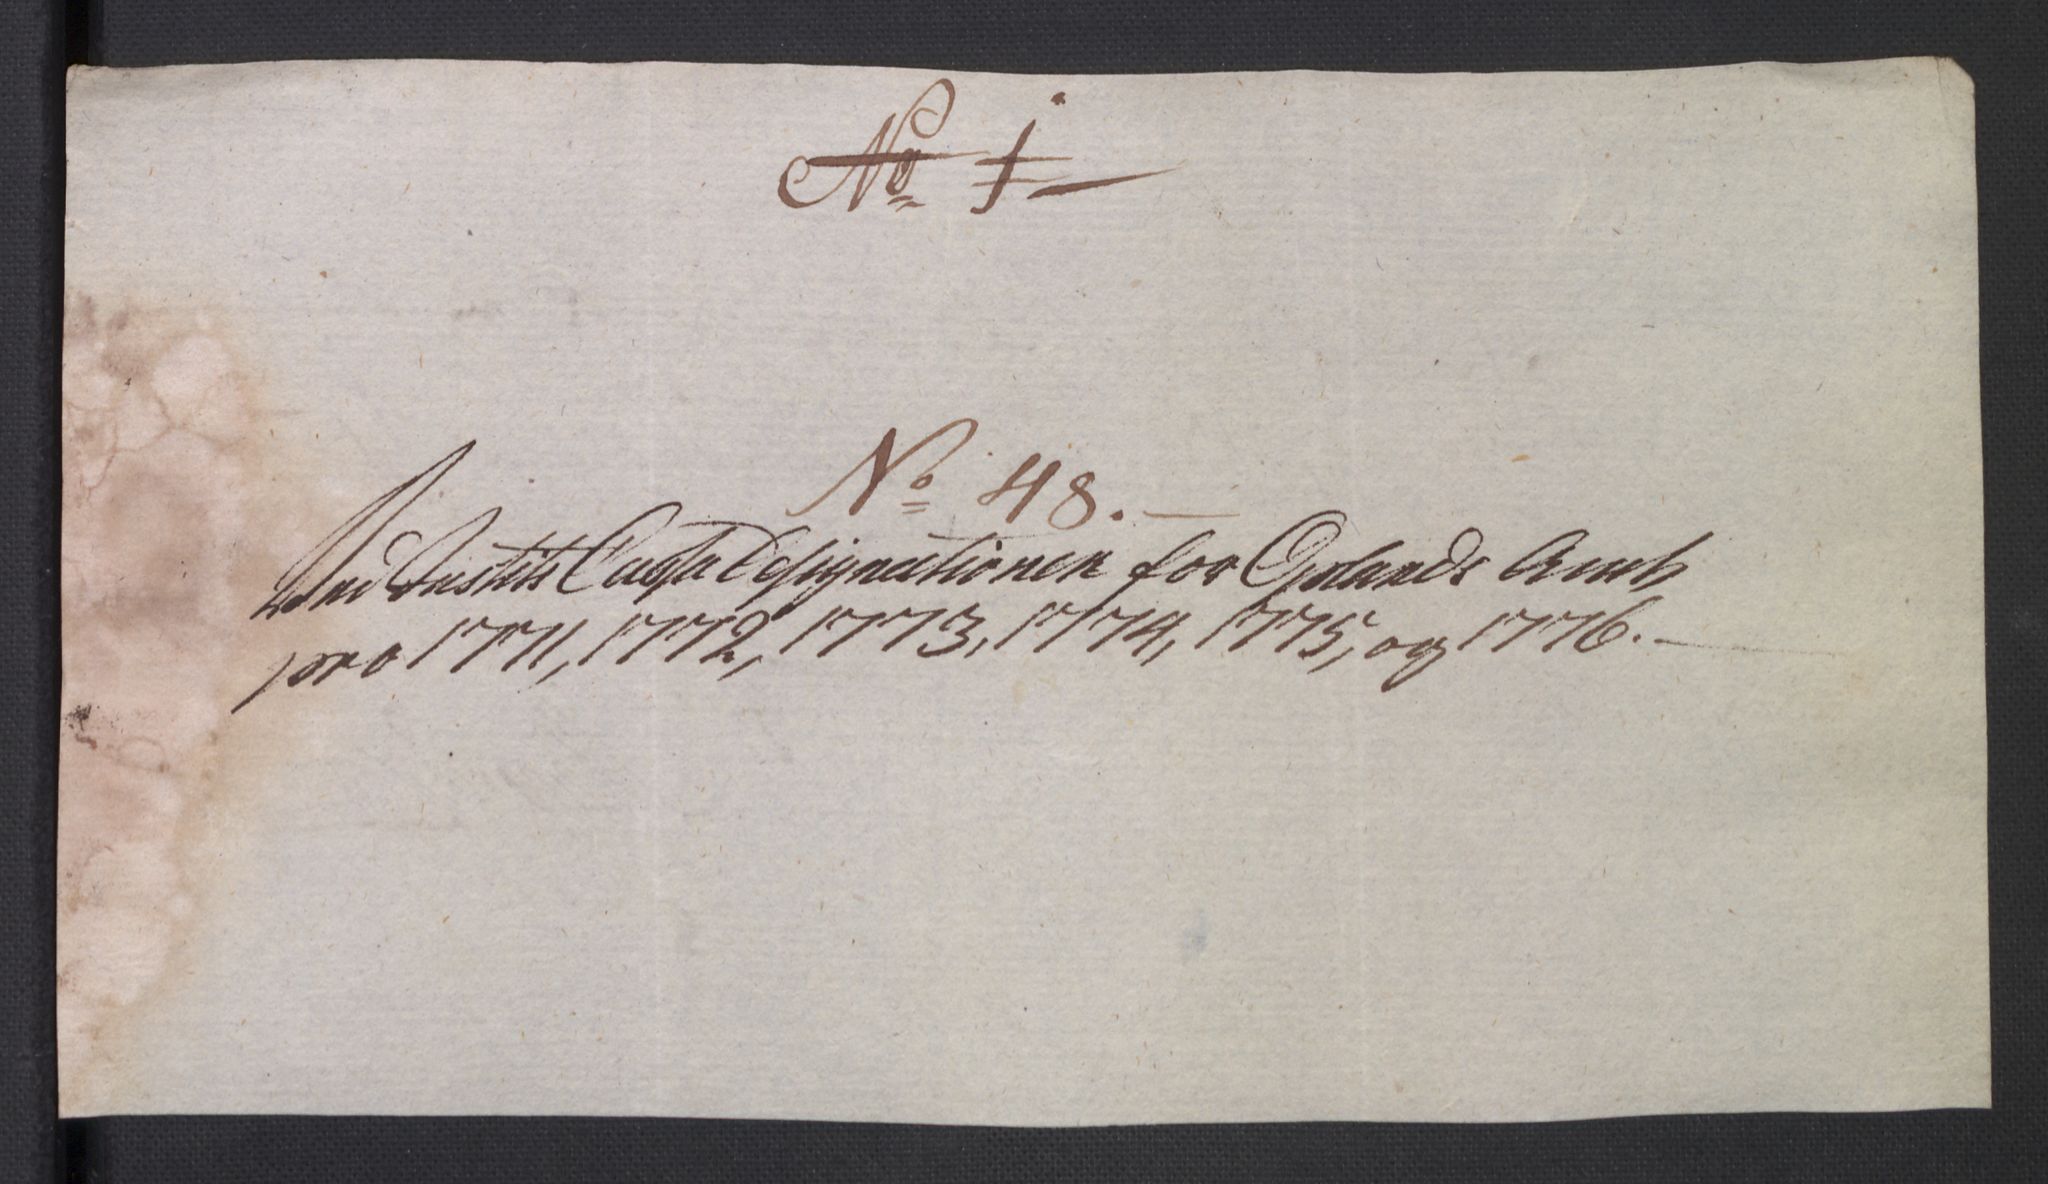 No 1
No 48.
Justits Cassa Designationen for Oplands Amt
pro 1771, 1772, 1773, 1774, 1775, og 1776.